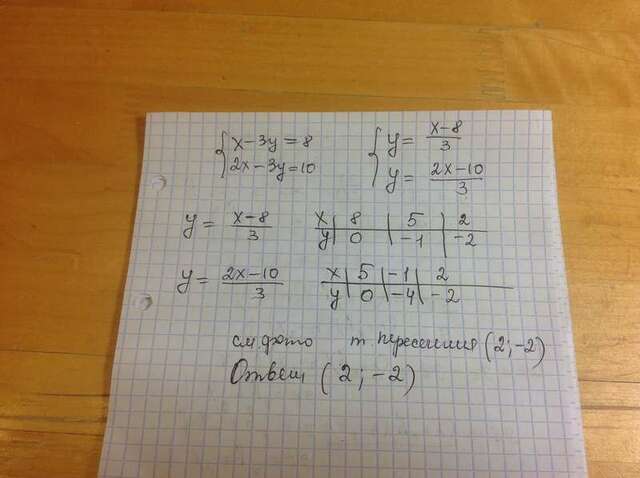 x-3y=8
2x-3y=10
y= x-8/3
y= 2x-10/3
y= x-8/3
x 8 5 2
y 0 -1 -2
y= 2x-10/3
x 5 -1 2
y 0 -4 -2
см фото т (2;-2)
Ответ (2;-2)